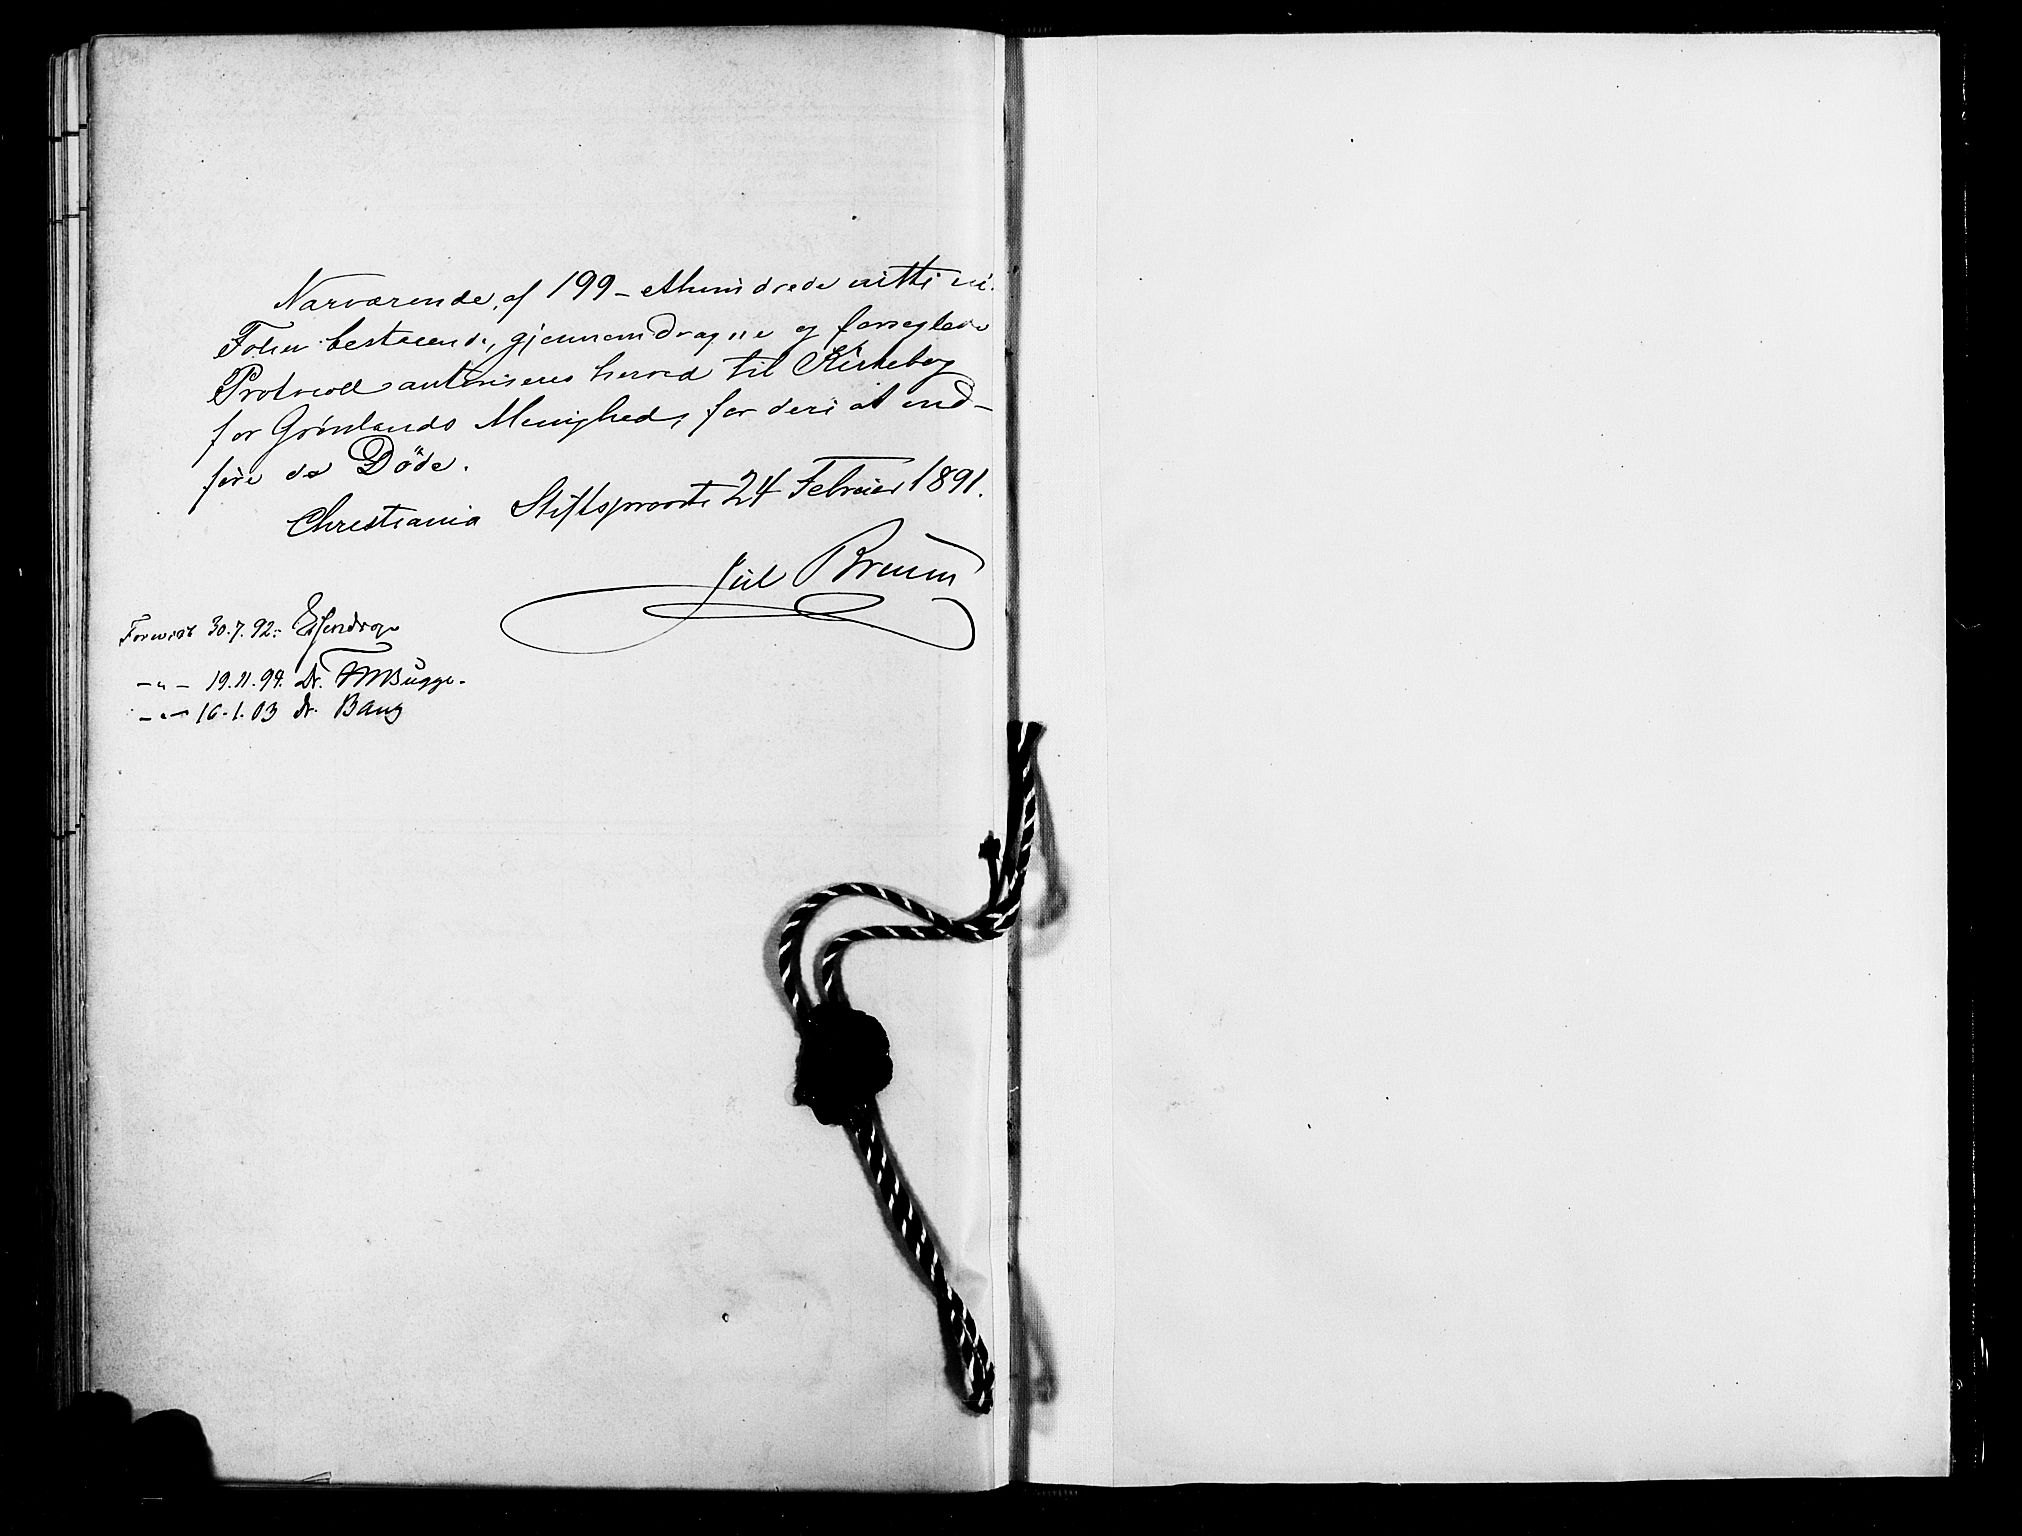 Nærværende, af 199 - ethundrede nitti ni
Folier bestaaende, gjennemdragne og forseglede
Protocoll autoriseres herved til Kirkebog
for Grønlands Menighed, for deri at ind-
føre de Døde.
Christiania Stiftsprovsti 24 Februar 1891.
Jul Bruun
Forevist 30.7.92: Essendrop
-"- 19.11.94. Dr. FWBugge.
-"- 16.1.03 dr. Bang